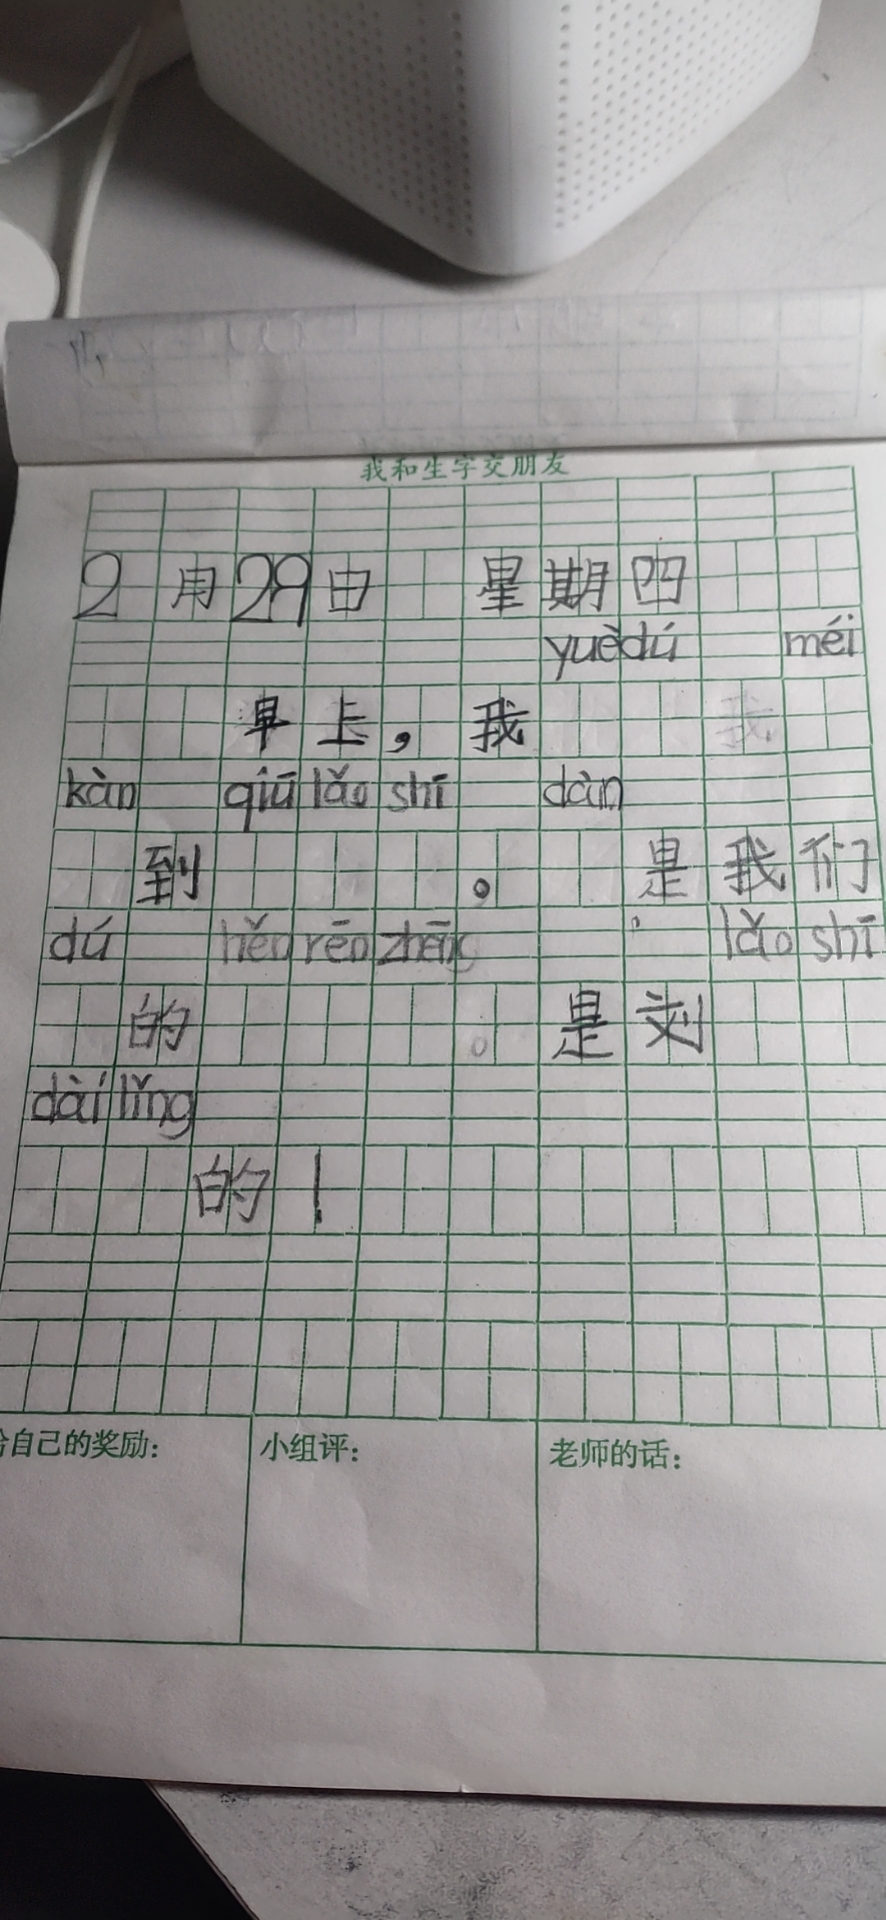 我和生字交朋友
2月29日 星期四
yuèdú méi
早上，我 我
kàn qiū lǎo shī dàn
到 。 是我们
dú hěn rēn zhēng lǎo shī
的 。是刘
dài lǐng
的！
给自己的奖励： 小组评： 老师的话：